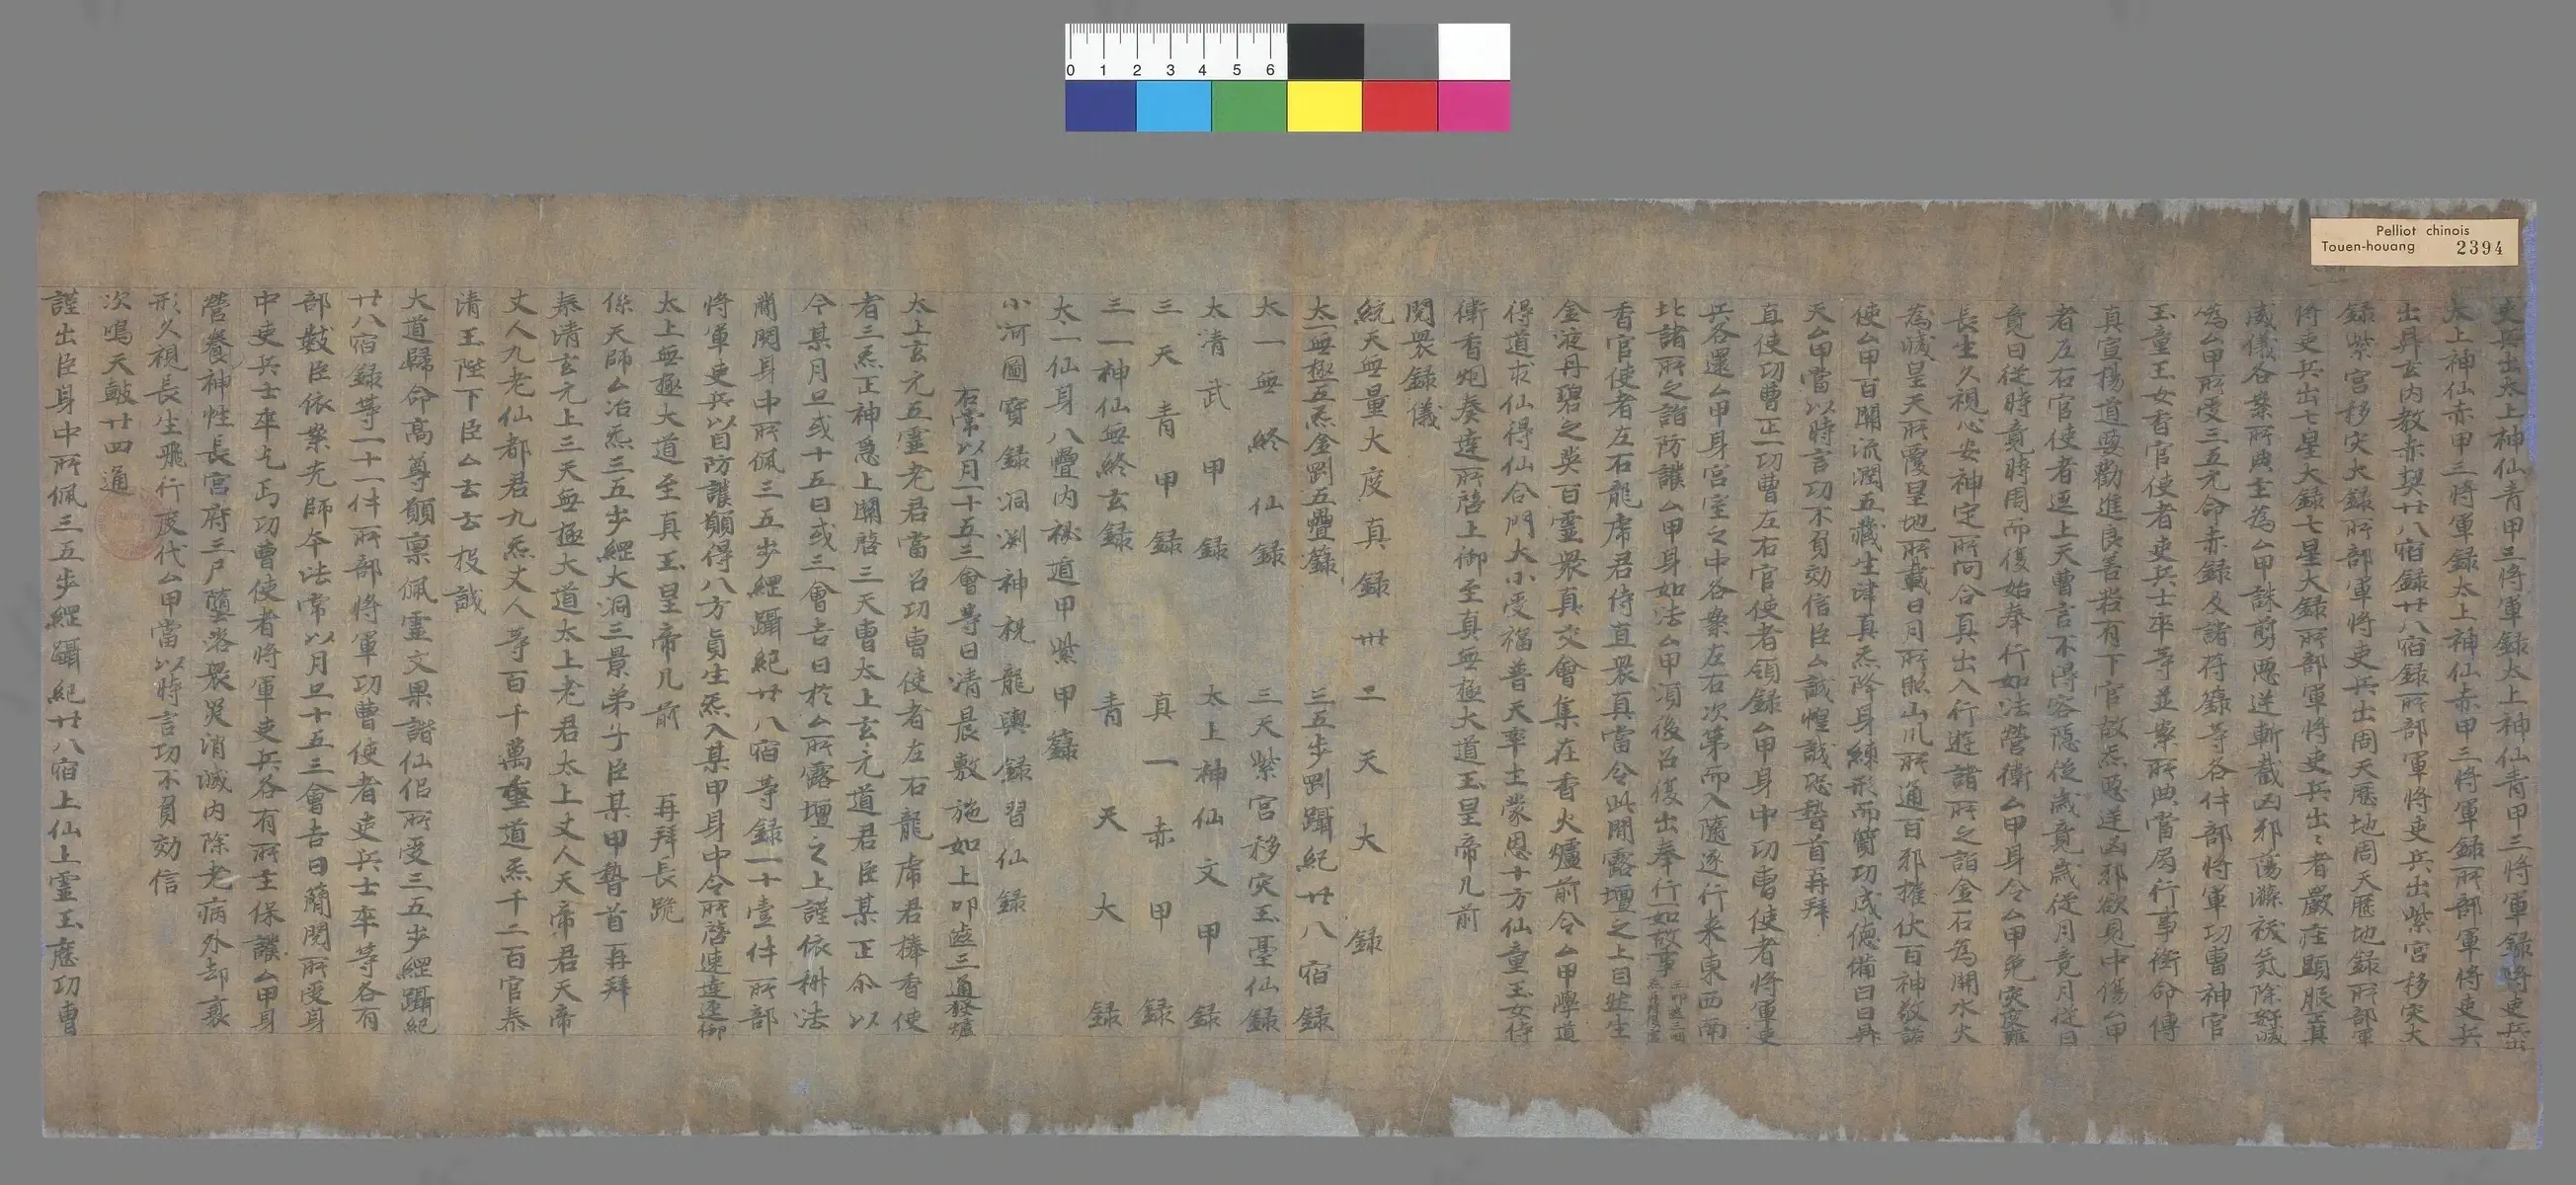 0 1 2 3 4 5 6
Pelliot chinois
Touen-houang 2394
吏兵出太上神仙青甲三將軍籙太上神仙青甲三將軍籙將吏兵出
太上神仙赤甲三將軍籙太上神仙赤甲三將軍籙所部軍將吏兵
出昇玄內教赤契廿八宿籙廿八宿籙所部軍將吏兵出紫宮移灾大
籙紫宮移灾大籙所部軍將吏兵出周天曆地周天曆地籙所部軍
將吏兵出七星大籙七星大籙所部軍將吏兵出〻者嚴在顯服正其
威儀各案所典主為厶甲誅剪惡逆斬截凶邪蕩滌祅氣除
為厶甲所受三五元命赤籙及諸符籙等各件部將軍功曹神官
玉童玉女香官使者吏兵士卒等並案所典當局行事銜命傳
真宣揚道要勸進良善若有下官故炁惡逆凶邪欲見中傷厶甲
者左右官使者逕上天曹言不得容隱從歲竟歲從月竟月從日
竟日從時竟時周而復始奉行如法營衛厶甲身令厶甲免灾度難
長生久視心安神定所向合真出入行遊諸所之詣金石為開水火
為滅皇天所覆皇地所載日月所照山川所通百邪摧伏百神敬諾
使厶甲百關流潤五藏生津真炁降身練形而質功成德備白日昇
天厶甲當以時言功不負効信臣厶誠惶誠恐𥡴首再拜
直使功曹正一功曹左右官使者領籙厶甲身中功曹使者將軍吏
兵各還厶甲身宮室之中各案左右次第而入隨逐行來東西南
北諸所之詣防護厶甲身如法厶甲須後召復出奉行如故事
香官使者左右龍虎君侍直衆真當令此開露壇之上自然生
金液丹碧之英百靈衆真交會集在香火爐前令厶甲學道
得道求仙得仙合門大小受福普天率土蒙恩十方仙童玉女侍
衛香烟奏達所啓上御至真無極大道玉皇帝几前
閱衆籙儀
統天無量大度真籙 卅二天大籙
太一無極五炁金剛五疊籙 三五步剛躡紀廿八宿籙
太一無終仙籙 三天紫宮移灾玉臺仙籙
太清武甲籙 太上神仙文甲籙
三天青甲籙 真一赤甲籙
三一神仙無終玄籙 青天大籙
太一仙身八疊內祕遁甲紫甲籙
小河圖寶籙洞渕神祝龍輿籙習仙籙
右常以月一十五三會等日清晨敷施如上叩齒三通發爐
太上玄元五靈老君當召功曹使者左右龍虎君捧香使
者三炁正神急上關啓三天曹太上玄元道君臣某正尒以
今某月旦或十五日或三會吉日於厶所露壇之上謹依科法
簡閱身中所佩三五步綱躡紀廿八宿等籙一十壹件所部
將軍吏兵以自防護願得八方貞生炁入某甲身中令所啓速達逕御
太上無極大道至真玉皇帝几前 再拜長跪
係天師厶治炁三五步綱大洞三景弟子臣某甲𥡴首再拜
泰清玄元上三天無極大道太上老君太上丈人天帝君天帝
丈人九老仙都君九炁丈人等百千萬重道炁千二百官泰
清玉陛下臣厶云云投誠
大道歸命高尊願稟佩靈文果諧仙侶所受三五步綱躡紀
廿八宿籙等一十一件所部將軍功曹使者吏兵士卒等各有
部數臣依案先師本法常以月旦十五三會吉日簡閱所受身
中吏兵士卒乞丐功曹使者將軍吏兵各有所主保護厶甲身
營養神性長宮府三尸墮落衆災消滅內除老病外却衰
形久視長生飛行度代厶甲當以時言功不負効信
次鳴天鼓廿四通
謹出臣身中所佩三五步綱躡紀廿八宿上仙上靈玉應功曹